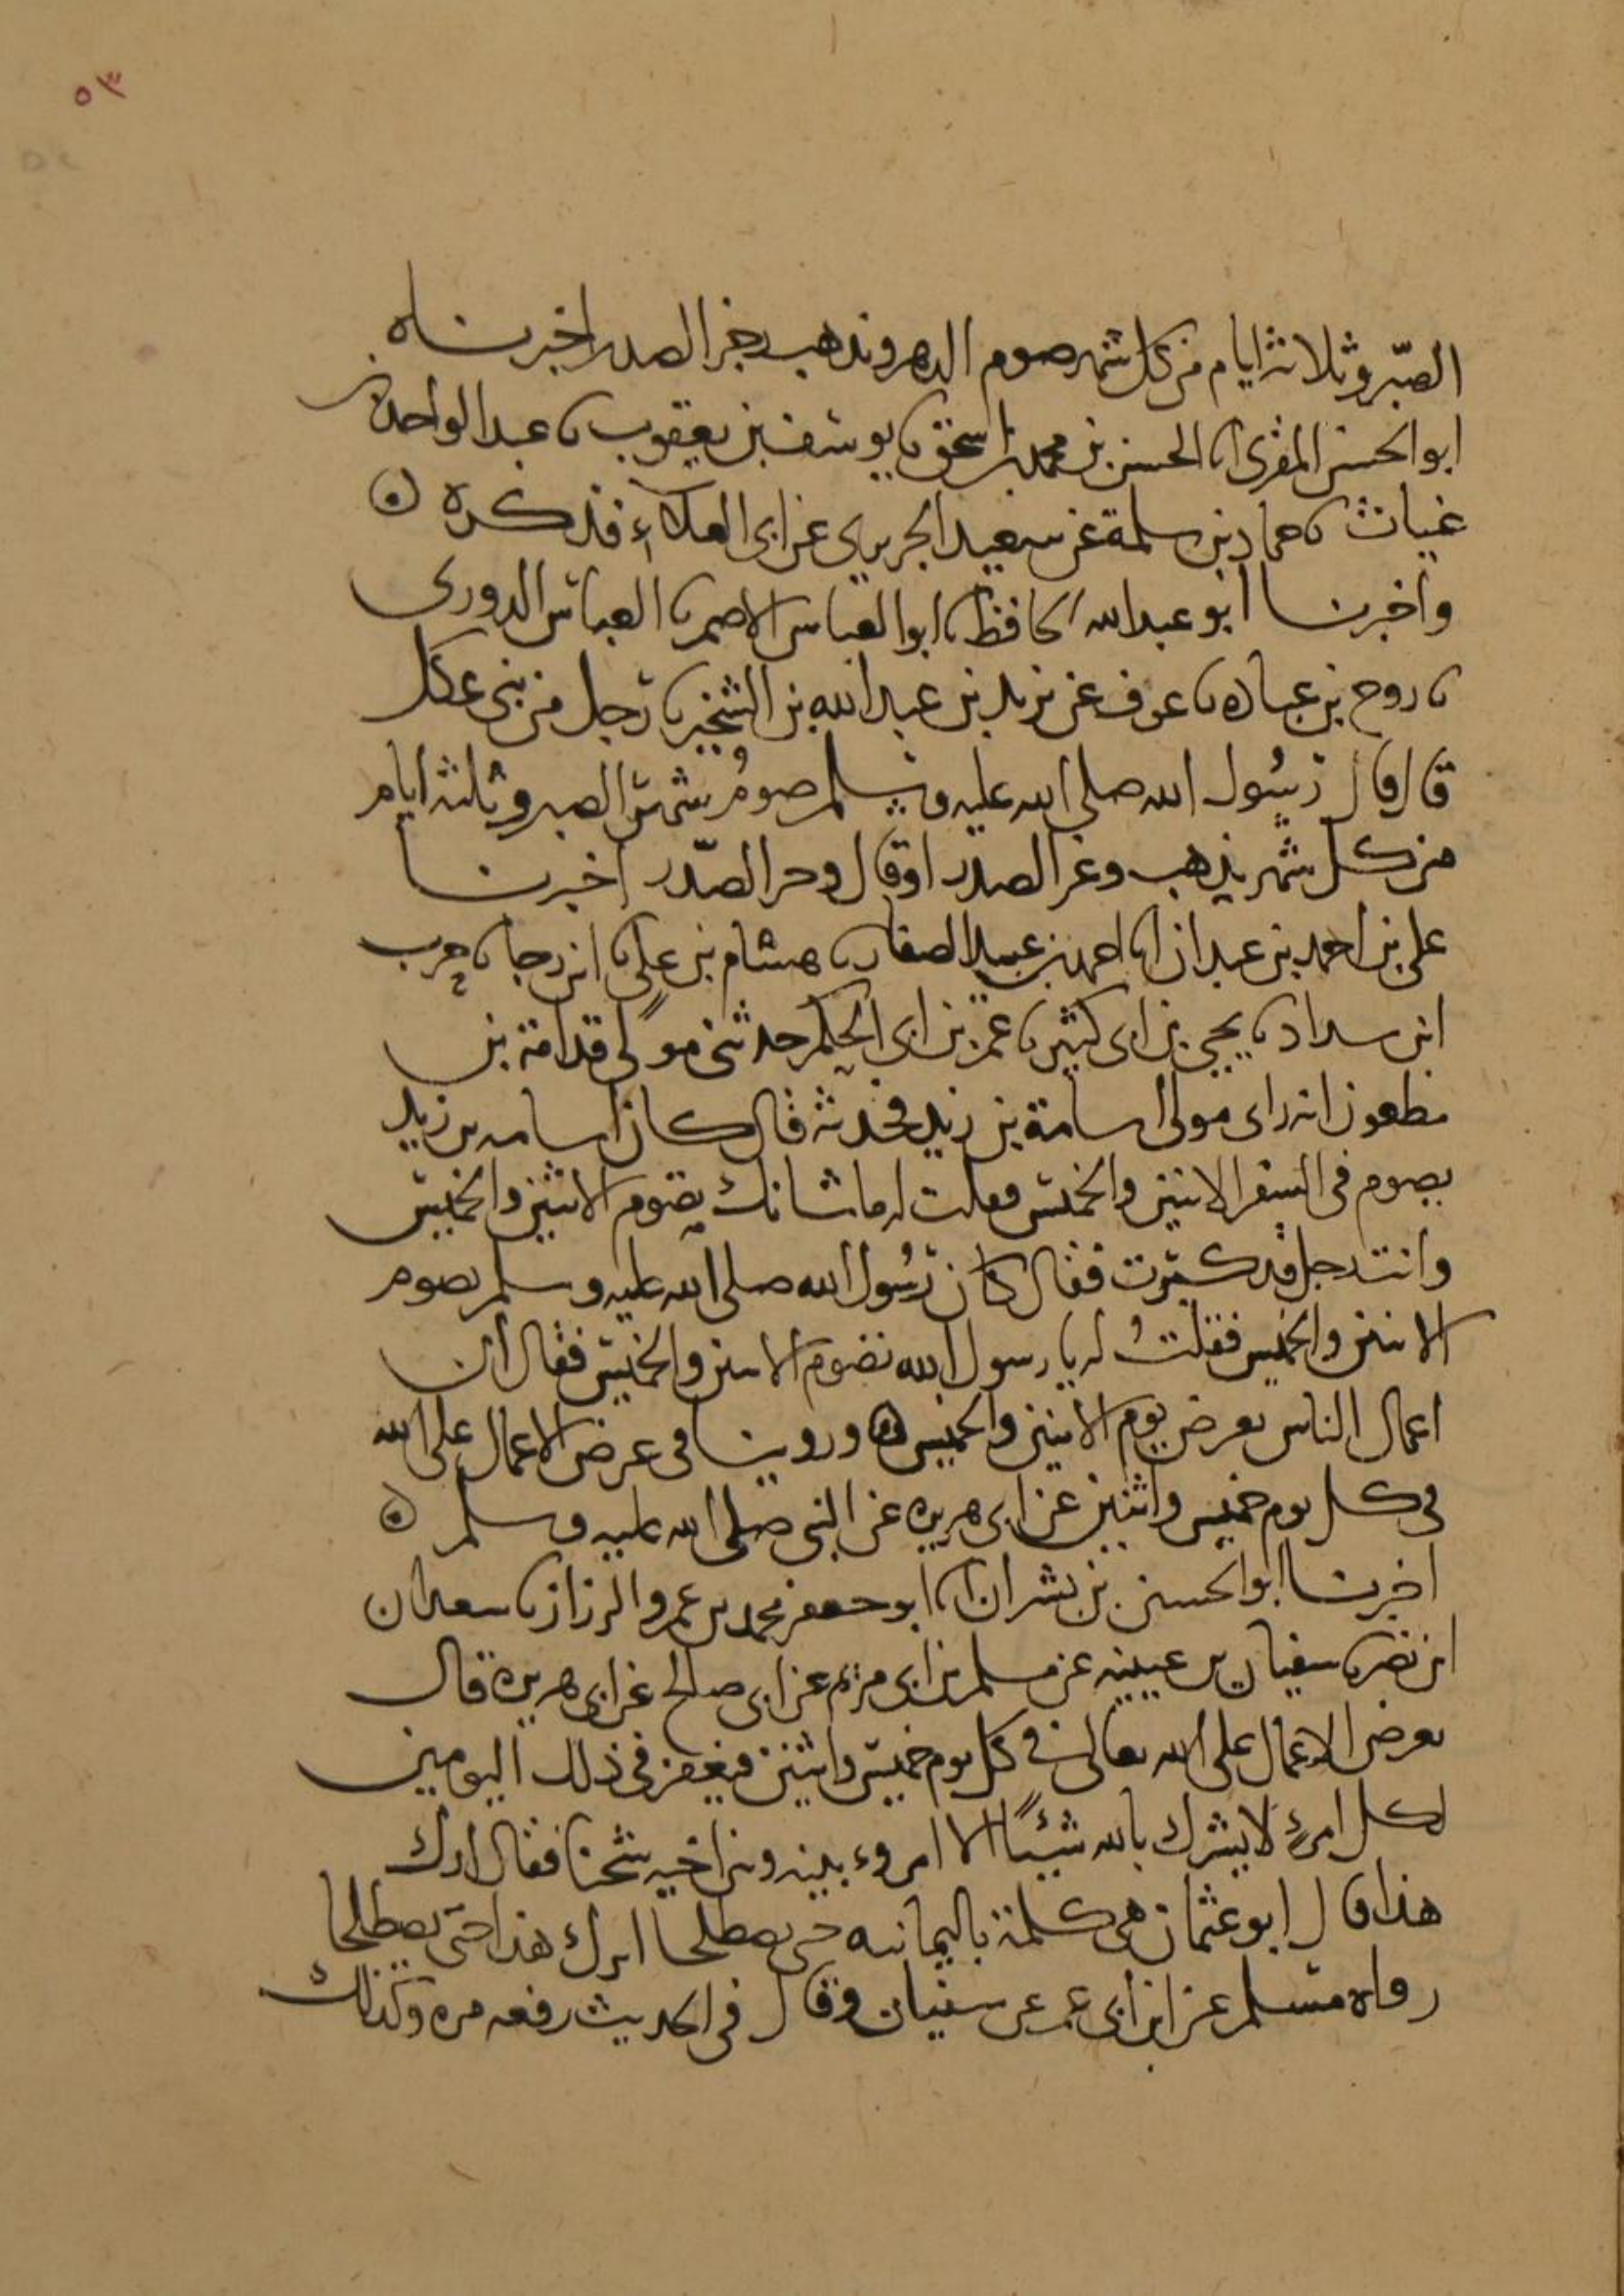 ٥٣
الصبّر وثلاثة ايام من كل شهر صوم الدهر ويذهب وغر الصدر اخبرناه
ابو الحسن المقرى انا الحسن بن محمد بن اسحق نا يوسف بن يعقوب نا عبد الواحد بن
غياث نا حماد بن سلمة عن سعيد الجريرى عن ابى العلاء فذكره
واخبرنا ابو عبد الله الحافظ نا ابو العباس الاصم نا العباس الدورى
نا روح بن عباده نا عوف عن يزيد بن عبد الله بن الشخير نا رجل من بنى عكل
قال قال رسُول الله صلى الله عليه وسلم صومُ شهر الصبر وثلثة ايام
من كل شهر يذهب وغر الصدر او قال وحر الصّدر اخبرنا
على بن احمد بن عبدان انا احمد بن عبيد الصفار نا هشام بن على نا ابن رجا نا حرب
ابن سداد نا يحيى بن ابى كثير نا عمر بن ابى الحكم حدثنى مولى قدامة بن
مظعون انه راى مولى اسامة بن زيد فحدثه قال كان اسامه بن زيد
يصوم فى السفر الاثنين والخميس فقلت له ما شانك تصوم الاثنين والخميس
وانت رجل قد كبرت فقال كان رسُول الله صلى الله عليه وسلم يصوم
الاثنين والخميس فقلتُ له يا رسول الله تصوم الاثنين والخميس فقال ان
اعمال الناس تعرض يوم الاثنين والخميس وروينا فى عرض الاعمال على الله
فى كل يوم خميس واثنين عن ابى هريره عن النبى صلى الله عليه وسلم
اخبرنا ابو الحسين بن بشران انا ابو جعفر محمد بن عمرو الرزاز نا سعدان
ابن نصر نا سفيان بن عيينه عن مسلم بن ابى مريم عن ابى صالح عن ابى هريره قال
تعرض الاعمال على الله تعالى فى كل يوم خميس واثنين فيغفر فى ذلك اليومين
لكل امرئ لا يشرك بالله شيئًا الا امروء بينه وبين اخيه شحنا فقال ارك
هذا قال ابو عثمان هى كلمة باليمانيه حتى يصطلحا اترك هذا حتى يصطلحا
رواه مسلم عن ابن ابى عمر عن سفيان وقال فى الحديث رفعه مره وكذلك